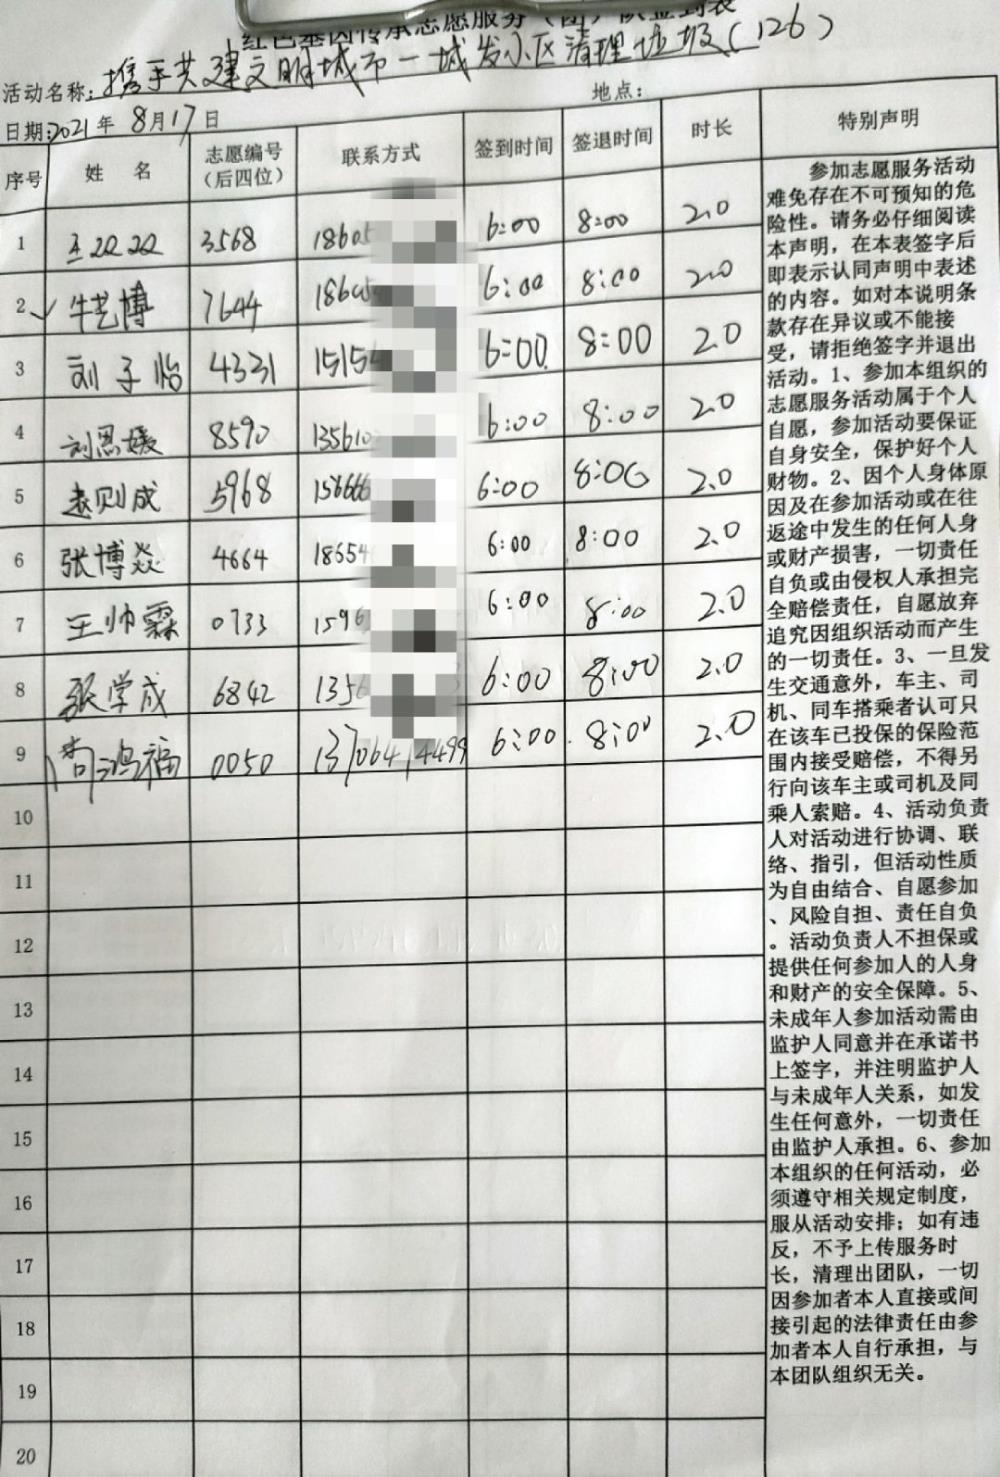 红色基因传承志愿服务（团）队签到表
活动名称:携手共建文明城市一城发小区清理垃圾(126)
日期:2021年 8月17日 地点:
序号 姓 名 志愿编号（后四位） 联系方式 签到时间 签退时间 时长 特别声明
1 王双双 3568 18605 6:00 8:00 2.0
2 牛艺博 7644 18605 6:00 8:00 2.0
3 刘子怡 4331 15154 6:00 8:00 2.0
4 刘恩媛 8590 135610 6:00 8:00 2.0
5 赵则成 5968 158666 6:00 8:00 2.0
6 张博焱 4664 18654 6:00 8:00 2.0
7 王帅霖 0733 1596 6:00 8:00 2.0
8 张学成 6842 1356 6:00 8:00 2.0
9 鸿福 0050 13706414499 6:00 8:00 2.0
10
11
12
13
14
15
16
17
18
19
20
参加志愿服务活动
难免存在不可预知的危
险性。请务必仔细阅读
本声明，在本表签字后
即表示认同声明中表述
的内容。如对本说明条
款存在异议或不能接
受，请拒绝签字并退出
活动。1、参加本组织的
志愿服务活动属于个人
自愿，参加活动要保证
自身安全，保护好个人
财物。2、因个人身体原
因及在参加活动或在往
返途中发生的任何人身
或财产损害，一切责任
自负或由侵权人承担完
全赔偿责任，自愿放弃
追究因组织活动而产生
的一切责任。3、一旦发
生交通意外，车主、司
机、同车搭乘者认可只
在该车已投保的保险范
围内接受赔偿，不得另
行向该车主或司机及同
乘人索赔。4、活动负责
人对活动进行协调、联
络、指引，但活动性质
为自由结合、自愿参加
、风险自担、责任自负
。活动负责人不担保或
提供任何参加人的人身
和财产的安全保障。5、
未成年人参加活动需由
监护人同意并在承诺书
上签字，并注明监护人
与未成年人关系，如发
生任何意外，一切责任
由监护人承担。6、参加
本组织的任何活动，必
须遵守相关规定制度，
服从活动安排；如有违
反，不予上传服务时
长，清理出团队，一切
因参加者本人直接或间
接引起的法律责任由参
加者本人自行承担，与
本团队组织无关。